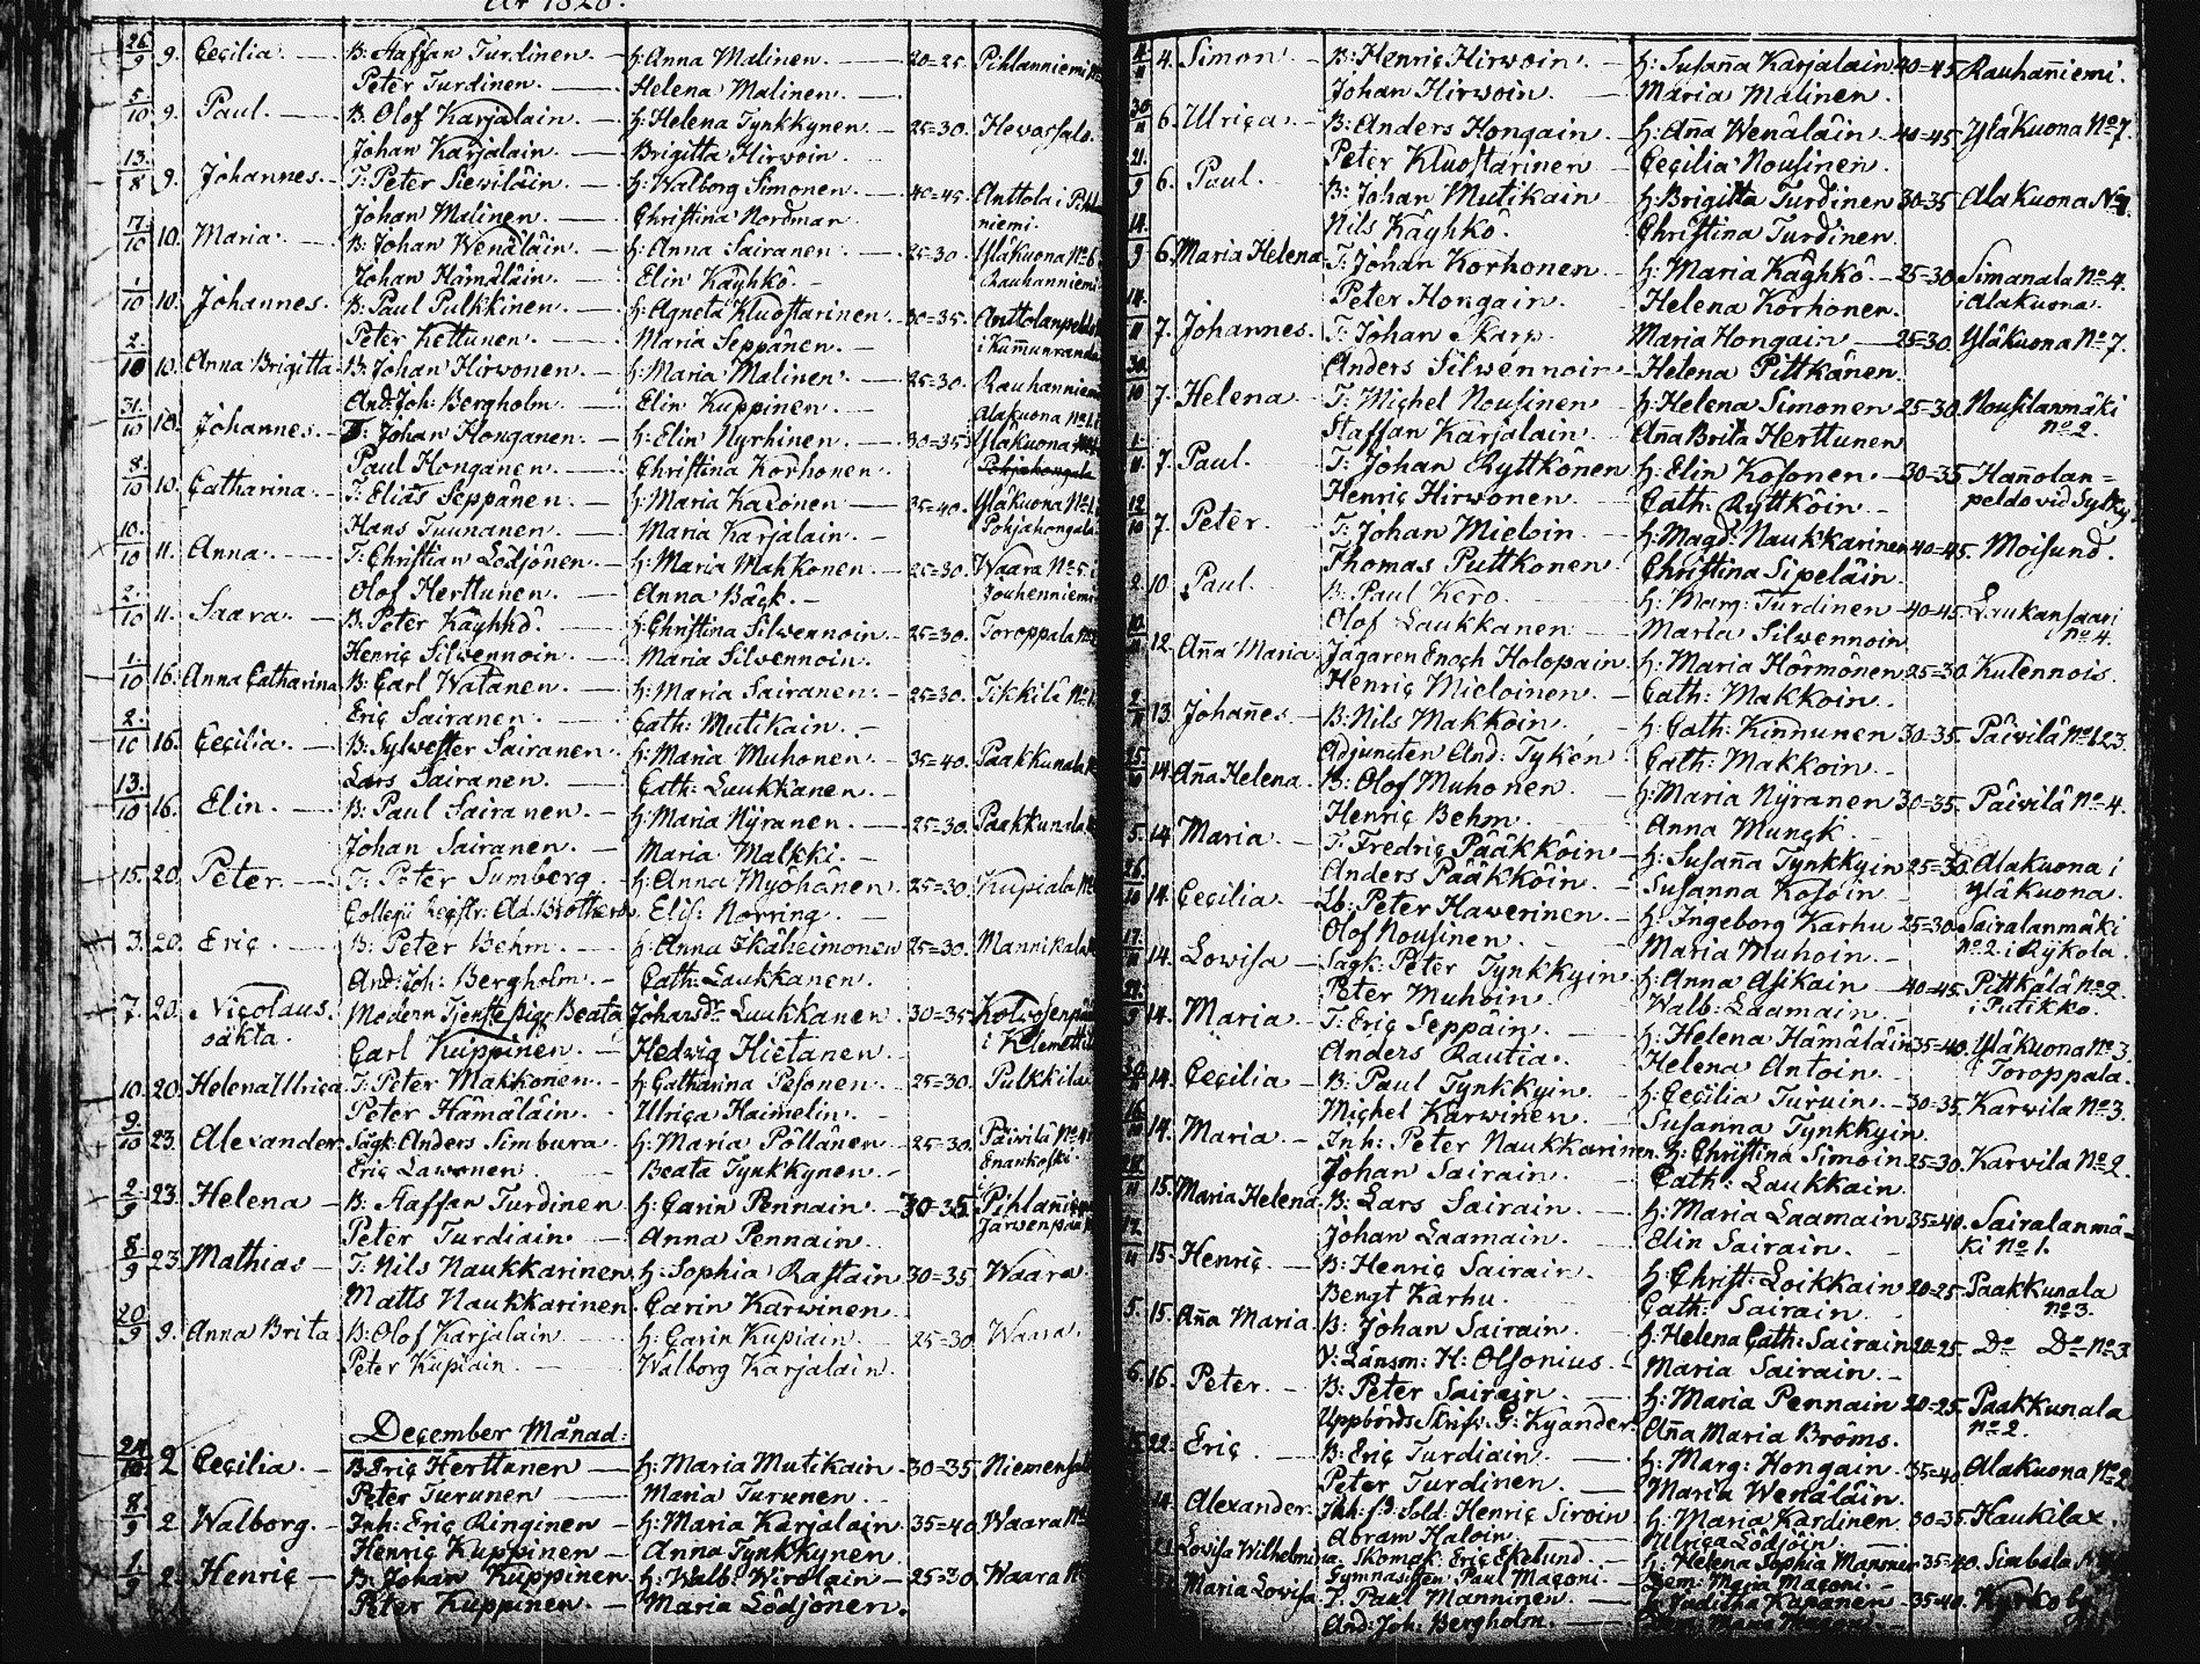 År 1828.
26/9 9. Cecilia. B: Staffan Turdinen. h: Anna Malinen. 20=25. Pihlanniemi
Peter Turdinen. Helena Malinen.
5/10 9. Paul. B. Olof Karjalain. h: Helena Tynkkynen 25=30. Hevossalo.
Johan Karjalain. Brigitta Hirvoin.
13/8 9. Johannes. T: Peter Siewiläin. h: Walborg Simonen. 40=45. Anttola i Pihla
Johan Malinen. Christina Nordman niemi.
17/10 10. Maria. B: Johan Wenäläin. h: Anna Sairanen. 25=30. Yläkuona No 6
Johan Hämäläin. Elin Käyhkö. Rauhanniemi
1/10 10. Johannes. B: Paul Pulkkinen. h: Agneta Kluostarinen. 30=35. Anttolanpeldo
Peter Kettunen. Maria Seppänen. i Kummunranda
2/10 10. Anna Brigitta B: Johan Hirwonen. h: Maria Malinen. 25=30. Rauhanniemi
And: Joh: Bergholm. Elin Kuppinen. Alakuona No 1.
31/10 10. Johannes. T: Johan Honganen. h: Elin Nyrhinen. 30=35 Yläkuona
Paul Honganen. Christina Korhonen. Pohjahongala
8/10 10. Catharina. T: Elias Seppänen. h: Maria Kasonen 35=40. Yläkuona No 1.
Hans Tuunanen. Maria Karjalain. Pohjahongala
10/10 11. Anna. T: Christian Lödjönen. h: Maria Mahkonen. 25=30. Waara No 5. i
Olof Herttunen. Anna Bäck. Jouhenniemi
2/10 11. Saara. B: Peter Käyhkö. h: Christina Silwennoin. 25=30. Toroppala
Henric Silwennoin. Maria Silvennoin.
1/10 16. Anna Catharina B: Carl Watanen. h: Maria Sairanen. 25=30. Tikkilä No 1
Eric Sairanen. Cath: Mutikain.
2/10 16. Cecilia. B: Sylwester Sairanen. h: Maria Muhonen. 35=40. Paakkunala
Lars Sairanen. Cath: Luukkanen.
13/10 16. Elin. B: Paul Sairanen. h: Maria Nÿranen. 25=30. Paakkunala
Johan Sairanen. Maria Malkki.
15. 20. Peter. T: Peter Sumberg. h: Anna Myöhänen. 25=30. Kupiala
Collegii Registr: Ad. Brotherus. Elis: Norring.
3. 20. Eric. B: Peter Behm. h: Anna Ikäheimonen 25=30. Mannikala
And: Joh: Bergholm. Cath: Laukkanen.
7. 20. Nicolaus. Modern Tjenstepig: Beata Johansdr Luukkanen. 30=35 Kolwosenpää
oäkta. Carl Kuippinen. Hedwig Hietanen. i Klemettilä
10. 20. Helena Ulrica T: Peter Makkonen. h: Catharina Pesonen. 25=30. Pulkkila
Peter Hämäläin. Ulrica Haimelin.
9/10 23. Alexander Sägk: Anders Simbura. h: Maria Pöllänen. 25=30. Päivilä No 4
Eric Lawonen. Beata Tynkkynen. Enankoski.
2/9 23. Helena B: Staffan Turdinen h: Carin Pennain. 30=35. Pihlanniemi
Peter Turdiain. Anna Pennain. Järwenpää
8/9 23. Mathias T: Nils Naukkarinen. h: Sophia Rastain 30=35 Waara
Matts Naukkarinen. Carin Karwinen
20/9 9. Anna Brita B: Olof Karjalain. h: Carin Kupiain. 25=30. Waara.
Peter Kupiain. Walborg Karjalain.
December Månad:
24/10 2. Cecilia. B: Eric Herttunen h: Maria Mutikain 30=35 Niemensalo
Peter Turunen Maria Turunen.
8/9 2 Walborg. Inh: Eric Ringinen h: Maria Karjalain 35=40 Waara
Henric Kuppinen Anna Tynkkynen
1/9 2. Henric B: Johan Kuppinen h: Walb: Wirolain 25=30. Waara
Peter Kuppinen. Maria Lödjönen.
4/11 4. Simon. B: Henric Hirvoin. h: Susanna Karjalain. 40=45 Rauhanniemi.
Johan Hirwoin. Maria Malinen.
30/11 6. Ulrica. B: Anders Hongain. h: Anna Wenäläin. 40=45 Yläkuona No 7.
Peter Kluostarinen Cecilia Nousinen.
21/9 6. Paul. B: Johan Mutikain h: Brigitta Turdinen 30=35 Alakuona
Nils Käyhkö. Christina Turdinen.
14/9 6. Maria Helena T: Johan Korhonen h: Maria Käyhkö. 25=30. Simanala No 4.
Peter Hongain. Helena Korhonen. i Alakuona.
14/11 7. Johannes. T: Johan Skarp. Maria Hongain 25=30. Yläkuona No 7.
Anders Silwennoin Helena Pittkänen.
30/10 7. Helena T: Michel Nousinen h: Helena Simonen 25=30. Nousilanmäki
Staffan Karjalain. Anna Brita Herttunen no 2.
1/11 7. Paul. T: Johan Ryttkönen h: Elin Kosonen. 30=35 Hannolan=
Henric Hirwonen Cath: Ryttköin. peldo vid Sylky.
12/10 7. Peter. T: Johan Mieloin. h: Magd: Naukkarinen 40=45. Moisund.
Thomas Puttkonen Christina Sipeläin.
2 10 Paul. B: Paul Kero. h: Marg: Turdinen 40=45. Laukansaari
Olof Laukkanen Maria Silwennoin no 4.
10/11 12. Anna Maria Jägaren Enoch Holopain. h: Maria Hörmönen 25=30. Kulennois.
Henric Mieloinen. Cath: Makkoin.
2/11 13. Johannes. B: Nils Makkoin. h: Cath: Kinnunen 30=35. Päivilä No 123.
Adjuncten And: Tykén Cath: Makkoin.
14. Anna Helena. B: Olof Muhonen. h: Maria Nÿranen 30=35. Päivilä No 4.
Henric Behm. Anna Munck.
5. 14 Maria T: Fredric Pääkköin h: Susanna Tynkkyin 25=30. Alakuona i
Anders Pääkköin. Susanna Kosoin. Yläkuona.
26/10 14. Cecilia. Lb: Peter Hawerinen. h: Ingeborg Karhu 25=30. Sairalanmäki
Olof Nousinen. Maria Muhoin. no 2. i Rykola.
17/11 14. Lowisa Sägk: Peter Tynkkyin h: Anna Asikain 40=45. Pittkälä No 2.
Peter Muhoin. Walb: Laamain. i Putikko.
14. Maria. T: Eric Seppäin. h: Helena Hämäläin 35=40. Yläkuona No 3.
Anders Rautia. Helena Antoin. i Toroppala.
14. Cecilia B: Paul Tynkkyin. h: Cecilia Turuin. 30=35. Karvila No 3.
Michel Karwinen. Susanna Tynkkyin.
14. Maria. Inh: Peter Naukkarinen. h: Christina Simoin 25=30. Karvila No 2.
Johan Sairain. Cath: Laukkain.
15. Maria Helena B: Lars Sairain. h: Maria Laamain 35=40. Sairalanmä-
Johan Laamain. Elin Sairain. ki No 1.
17/11 15. Henric. B: Henric Sairain. h: Christ: Loikkain 20=25. Paakkunala
Bengt Karhu. Cath: Sairain. no 3.
5. 15. Anna Maria. B: Johan Sairain. h: Helena Cath: Sairain 20=25. Do Do No 3
V: Länsm: H: Olsonius. Maria Sairain.
6. 16. Peter. B: Peter Sairain. h: Maria Pennain 20=25. Paakkunala
Uppbörds Skrifv. G: Kyander. Anna Maria Bröms. no 2.
22. Eric B: Eric Turdiain. h: Marg: Hongain. 35=40. Alakuona No 2
Peter Turdinen. Maria Wenäläin.
Alexander. Inh: fd: Sold: Henric Siroin h: Maria Kardinen. 30=35. Haukilax.
Abram Haloin. Ulrica Lödjöin.
Lovisa Wilhelmina. Skomak: Eric Ekelund. h: Helena Sophia Mansner 35=40. Simbala
Gymnasisten Paul Maconi. Dem: Maria Maconi.
Maria Lovisa T. Paul Manninen. h: Juditha Kapanen 35=40. Kyrkoby
And: Joh: Bergholm.